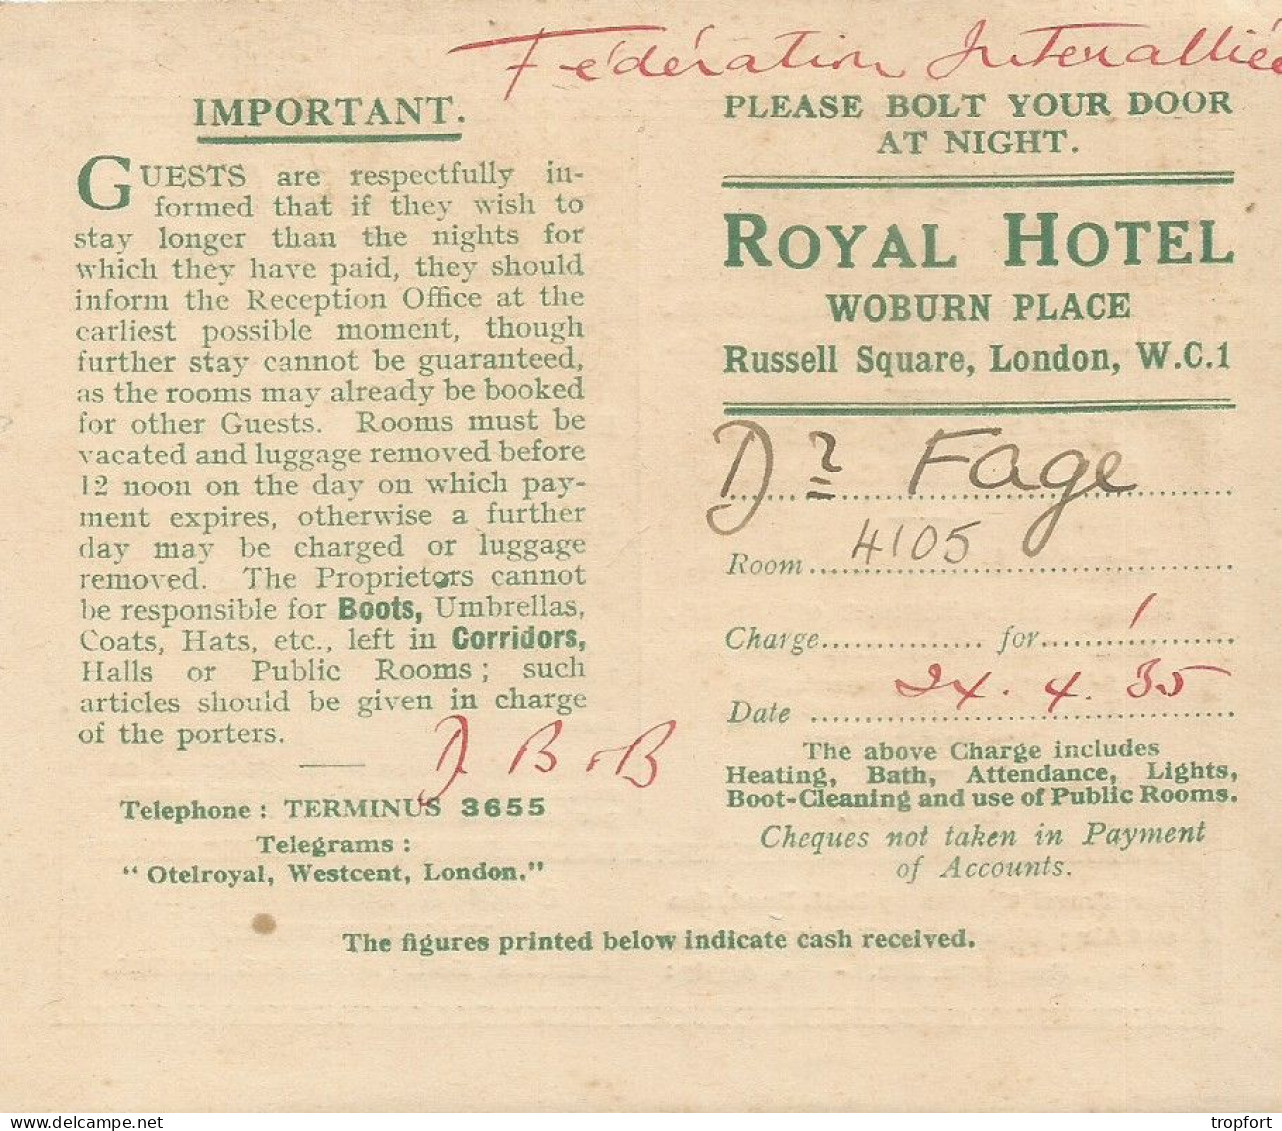 Fédération Interalliée
IMPORTANT.
GUESTS are respectfully in-
formed that if they wish to
stay longer than the nights for
which they have paid, they should
inform the Reception Office at the
earliest possible moment, though
further stay cannot be guaranteed,
as the rooms may already be booked
for other Guests. Rooms must be
vacated and luggage removed before
12 noon on the day on which pay-
ment expires, otherwise a further
day may be charged or luggage
removed. The Proprietors cannot
be responsible for Boots, Umbrellas,
Coats, Hats, etc., left in Corridors,
Halls or Public Rooms; such
articles should be given in charge
of the porters.
D. B & B
Telephone: TERMINUS 3655
Telegrams:
"Otelroyal, Westcent, London."
PLEASE BOLT YOUR DOOR
AT NIGHT.
ROYAL HOTEL
WOBURN PLACE
Russell Square, London, W.C.1
Dr Fage
Room 4105
Charge for 1
Date 24.4.35
The above Charge includes
Heating, Bath, Attendance, Lights,
Boot-Cleaning and use of Public Rooms.
Cheques not taken in Payment
of Accounts.
The figures printed below indicate cash received.
www.delcampe.net
tropfort